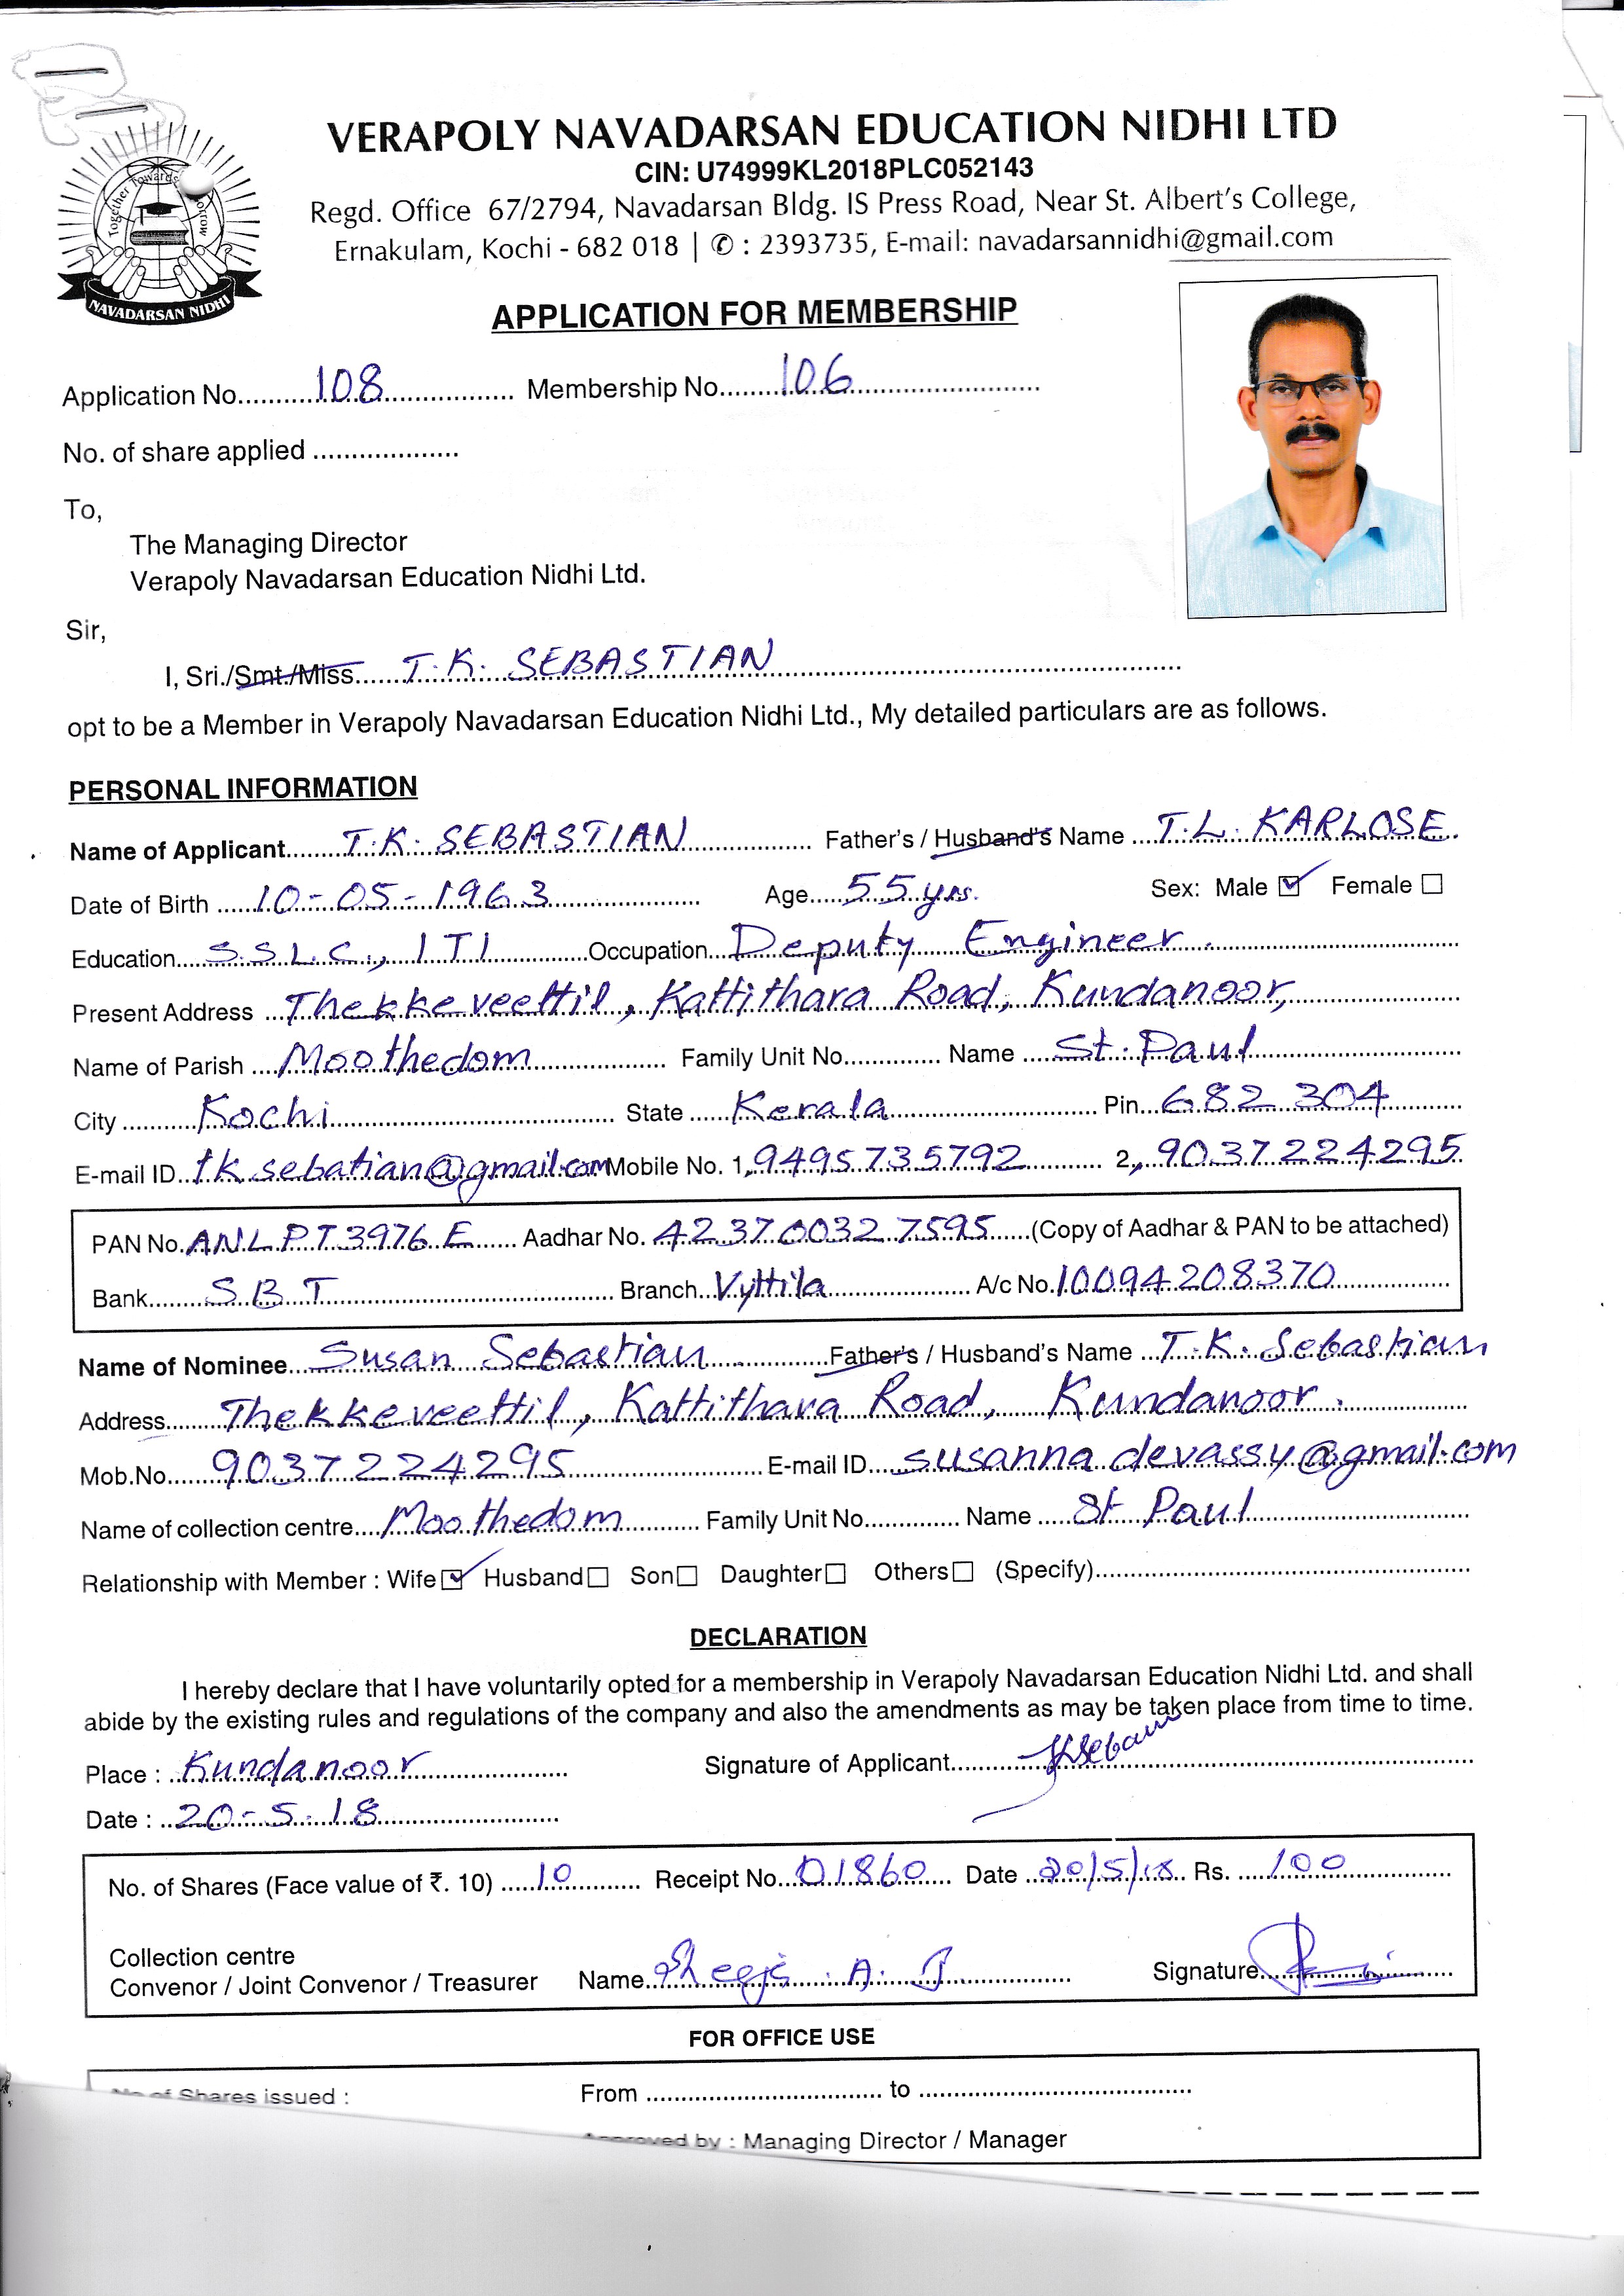 VERAPOLY NAVADARSAN EDUCATION NIDHI LTD
CIN: U74999KL2018PLC052143
Regd. Office 67/2794, Navadarsan Bldg. IS Press Road, Near St. Albert's College,
Ernakulam, Kochi - 682 018 | ✆ : 2393735, E-mail: navadarsannidhi@gmail.com
Together Towards
NAVADARSAN NIDHI
APPLICATION FOR MEMBERSHIP
Application No. 108 Membership No. 106
No. of share applied
To,
The Managing Director
Verapoly Navadarsan Education Nidhi Ltd.
Sir,
I, Sri./Smt./Miss. T.K. SEBASTIAN
opt to be a Member in Verapoly Navadarsan Education Nidhi Ltd., My detailed particulars are as follows.
PERSONAL INFORMATION
Name of Applicant T.K. SEBASTIAN Father's / Husband's Name T.L. KARLOSE.
Date of Birth 10-05-1963 Age 55 yrs. Sex: Male ☑ Female ☐
Education S.S.L.C., ITI Occupation Deputy Engineer.
Present Address Thekkeveettil, Kattithara Road, Kundanoor,
Name of Parish Moothedom Family Unit No. Name St. Paul
City Kochi State Kerala Pin 682 304
E-mail ID tksebatian@gmail.com Mobile No. 1, 9495735792 2, 9037224295
PAN No. ANLPT3976E Aadhar No. 4237 0032 7595 (Copy of Aadhar & PAN to be attached)
Bank SBT Branch Vyttila A/c No. 10094208370
Name of Nominee Susan Sebastian Father's / Husband's Name T.K. Sebastian
Address Thekkeveettil, Kattithara Road, Kundanoor.
Mob.No. 9037224295 E-mail ID susanna devassy@gmail.com
Name of collection centre Moothedom Family Unit No. Name St Paul
Relationship with Member : Wife ☑ Husband ☐ Son ☐ Daughter ☐ Others ☐ (Specify)
DECLARATION
I hereby declare that I have voluntarily opted for a membership in Verapoly Navadarsan Education Nidhi Ltd. and shall
abide by the existing rules and regulations of the company and also the amendments as may be taken place from time to time.
Place : Kundanoor Signature of Applicant
Date : 20-5-18
No. of Shares (Face value of ₹. 10) 10 Receipt No. 01860 Date 20/5/18 Rs. 100
Collection centre
Convenor / Joint Convenor / Treasurer Name A. J. Signature
FOR OFFICE USE
of Shares issued : From to
by : Managing Director / Manager